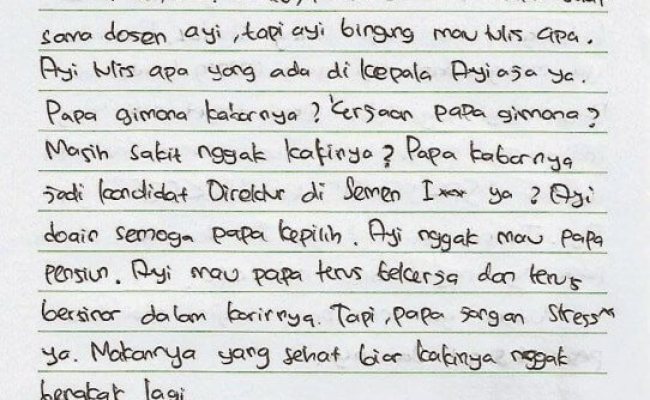 sama dosen ayi, tapi ayi bingung mau tulis apa.
Ayi tulis apa yang ada di kepala Ayi aja ya.
Papa gimana kabarnya? Kerjaan papa gimana?
Masih sakit nggak kakinya? Papa kabarnya
jadi kandidat Direktur di Semen I*** ya? Ayi
doain semoga papa kepilih. Ayi nggak mau papa
pensiun. Ayi mau papa terus bekerja dan terus
bersinar dalam karirnya. Tapi, papa jangan stress"
ya. Makannya yang sehat biar kakinya nggak
bengkak lagi